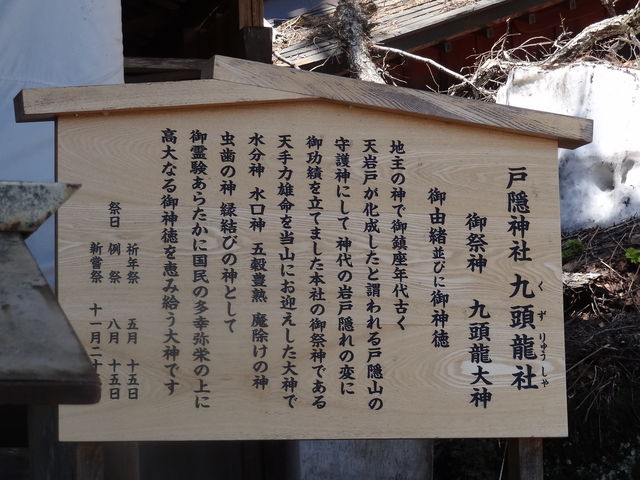 戸隠神社 九頭龍社
くず りゅうしゃ
御祭神 九頭龍大神
御由緒並びに御神徳
地主の神で御鎮座年代古く
天岩戸が化成したと謂われる戸隠山の
守護神にして 神代の岩戸隠れの変に
御功績を立てました本社の御祭神である
天手力雄命を当山にお迎えした大神で
水分神 水口神 五穀豊熟 魔除けの神
虫歯の神 縁結びの神として
御霊験あらたかに国民の多幸弥栄の上に
高大なる御神徳を恵み給う大神です
祈年祭 五月 十五日
祭日 例祭 八月 十五日
新嘗祭 十一月二十